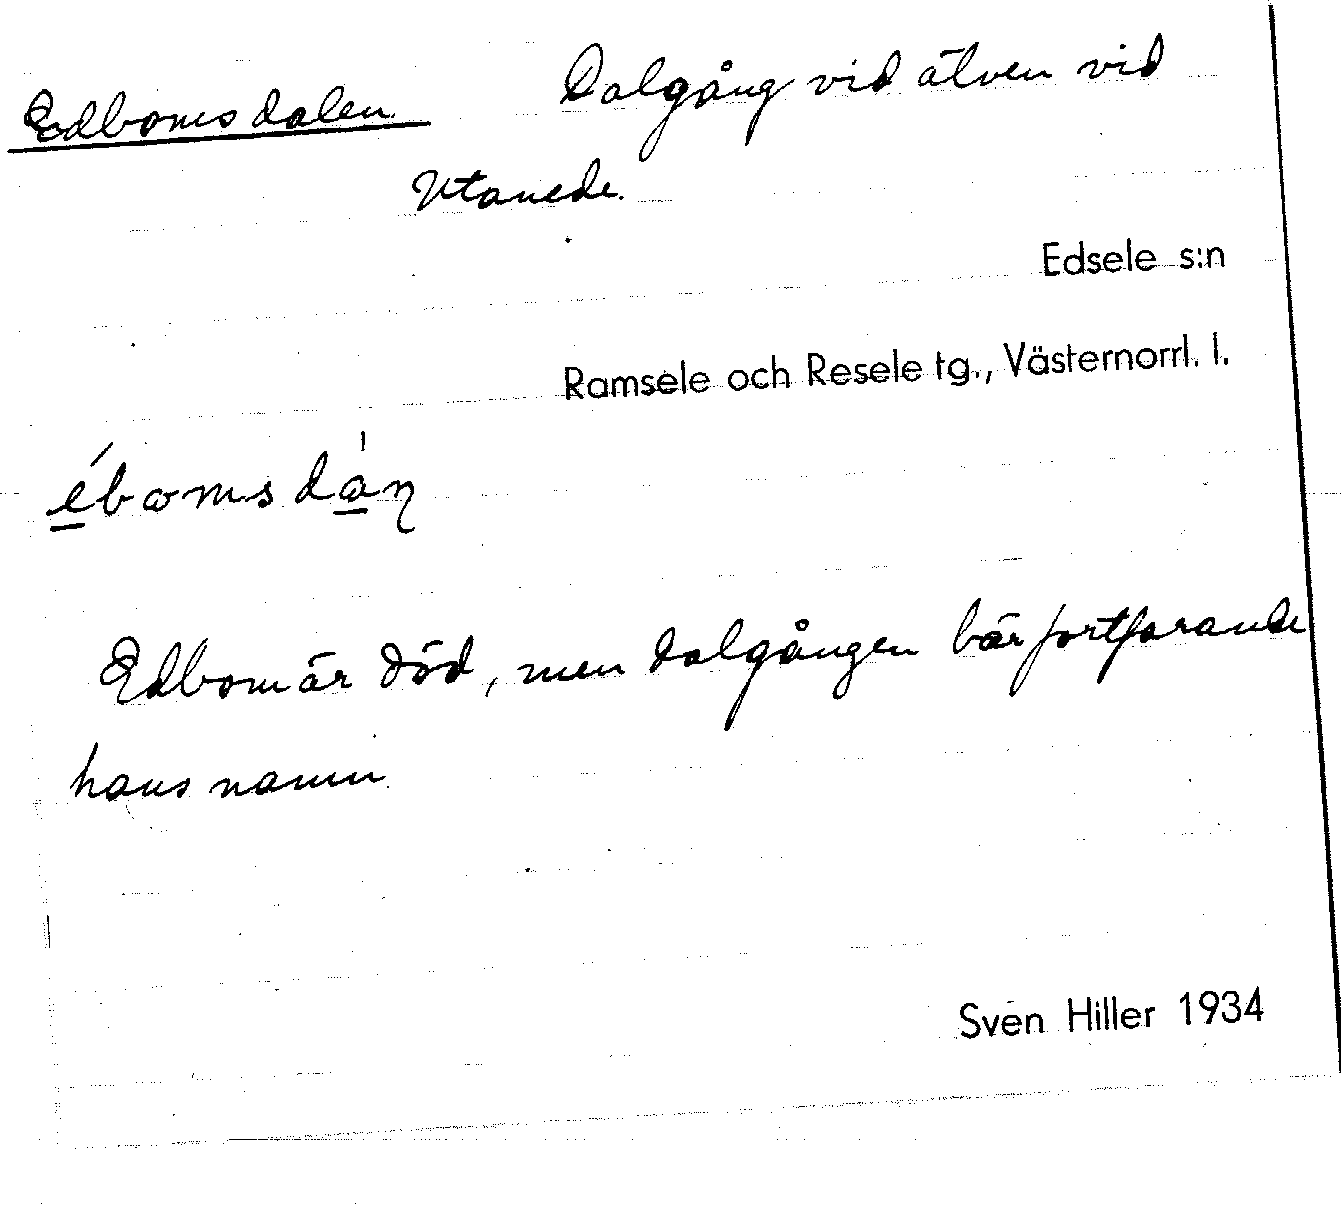 Edbomsdalen. Dalgång vid älven vid
Utanede.
Edsele s:n
Ramsele och Resele tg., Västernorrl. l.
ébomsdàn
Edbom är död, men dalgången bär fortfarande
hans namn.
Sven Hiller 1934